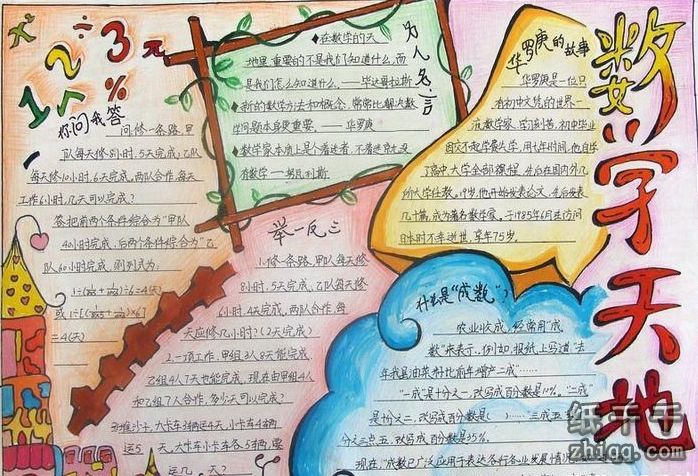 数学天地
x² ÷ 1 2 3 π %
你问我答
问修一条路,甲
队每天修8小时,5天完成;乙队
每天修10小时,6天完成。两队合作,每天
工作6小时,几天可以完成?
答把前两个条件综合为“甲队
40小时完成,后两个条件综合为“乙
队60小时完成,则列式为:
=4(天)
为人名言
◆在数学的天
地里重要的不是我们知道什么,而
是我们怎么知道什么。——毕达哥拉斯
◆新的数学方法和概念,常常比解决数
学问题本身更重要。——华罗庚
◆数学家本质上是个着迷者,不着迷就没
有数学——努瓦利斯
华罗庚的故事
华罗庚是一位只
有初中文凭的世界一
流数学家。学习刻苦,初中毕业
因交不起学费失学,用七年时间,他自学
了高中、大学全部课程,先后在国内外几
所大学任教。19岁,他开始发表论文,先后发表
几十篇,成为著名数学家,于1985年6月在访问
日本时不幸逝世,享年75岁。
举一反三
1.修一条路,甲队每天修
8小时,5天完成;乙队每天修
6小时,4天完成。两队合作,每
天应修几小时?(2天完成)
2.一项工作,甲组3人8天能完成
乙组4人7天也能完成。现在由甲组4人
和乙组7人合作,多少天可以完成?
大卡车小卡车各5辆,要
运几天?
什么是“成数”?
农业收成,经常用“成
数”来表示。例如,报纸上写道“去
年我县油菜籽比前年增产二成”
“一成”是十分之一,改写成百分数是10%。“二成”
是十分之二,改写成百分数是( )……三成五
分之三点五,改写成百分数是35%。
现在,“成数”已广泛应用于表达各行各业发展情况
纸千千
zhiqq.com